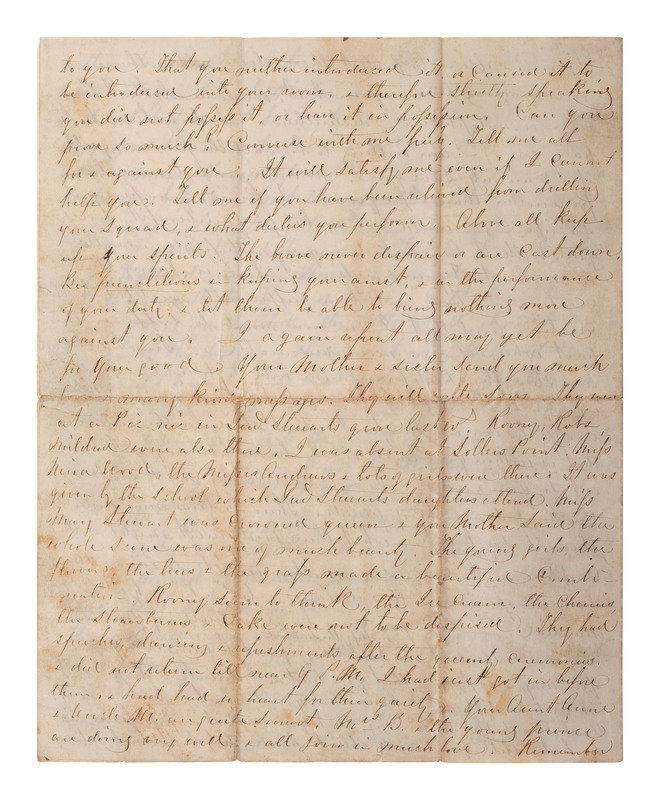 to you. That you neither introduced it or caused it to
be introduced into your room, & therefore strictly speaking
you did not possess it, or have it in possession. Can you
prove so much? Converse with me freely. Tell me all
for & against you. It will satisfy me even if I cannot
help you. Tell me if you have been relieved from drilling
your squad, & what duties you perform. Above all keep
up your spirits. The brave never despair or are cast down.
Be punctilious in keeping your arrest, & in the performance
of your duty, & let them be able to bring nothing more
against you. I again repeat all may yet be
for your good. Your Mother & sister send you much
love & many kind messages. They will write soon. They were
at a Pic nic in Stewarts grove last. Rooney, Rob &
Mildred were also there. I was absent at Sollers Point. Miss
Nena Wood, the Misses Andrews & lots of girls were there. It was
given by the school which Stewarts daughters attend. Miss
Mary Stewart was crowned queen & your Mother said the
whole scene was one of much beauty. The young girls, the
flowers, the trees & the grass made a beautiful combi-
nation. Rooney seem to think, the Ice Cream, the Cherries,
the Strawberries & Cake were not to be despised. They had
speeches, dancing & refreshments after the queenly ceremonies.
& did not return till near 9 P.M. I had just got in before
them, & had had no heart for their gaiety. Your Aunt Anne
& Uncle M. are quite smart, Mrs B. & the young prince
are doing very well & all join in much love. Remember